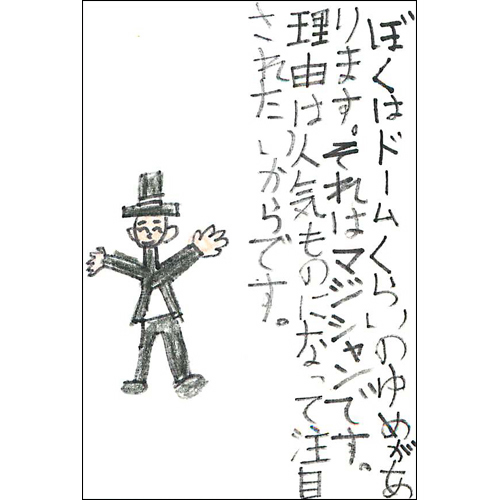 ぼくはドームくらいのゆめがあ
ります。それはマジシャンです。
理由は人気ものになって注目
されたいからです。